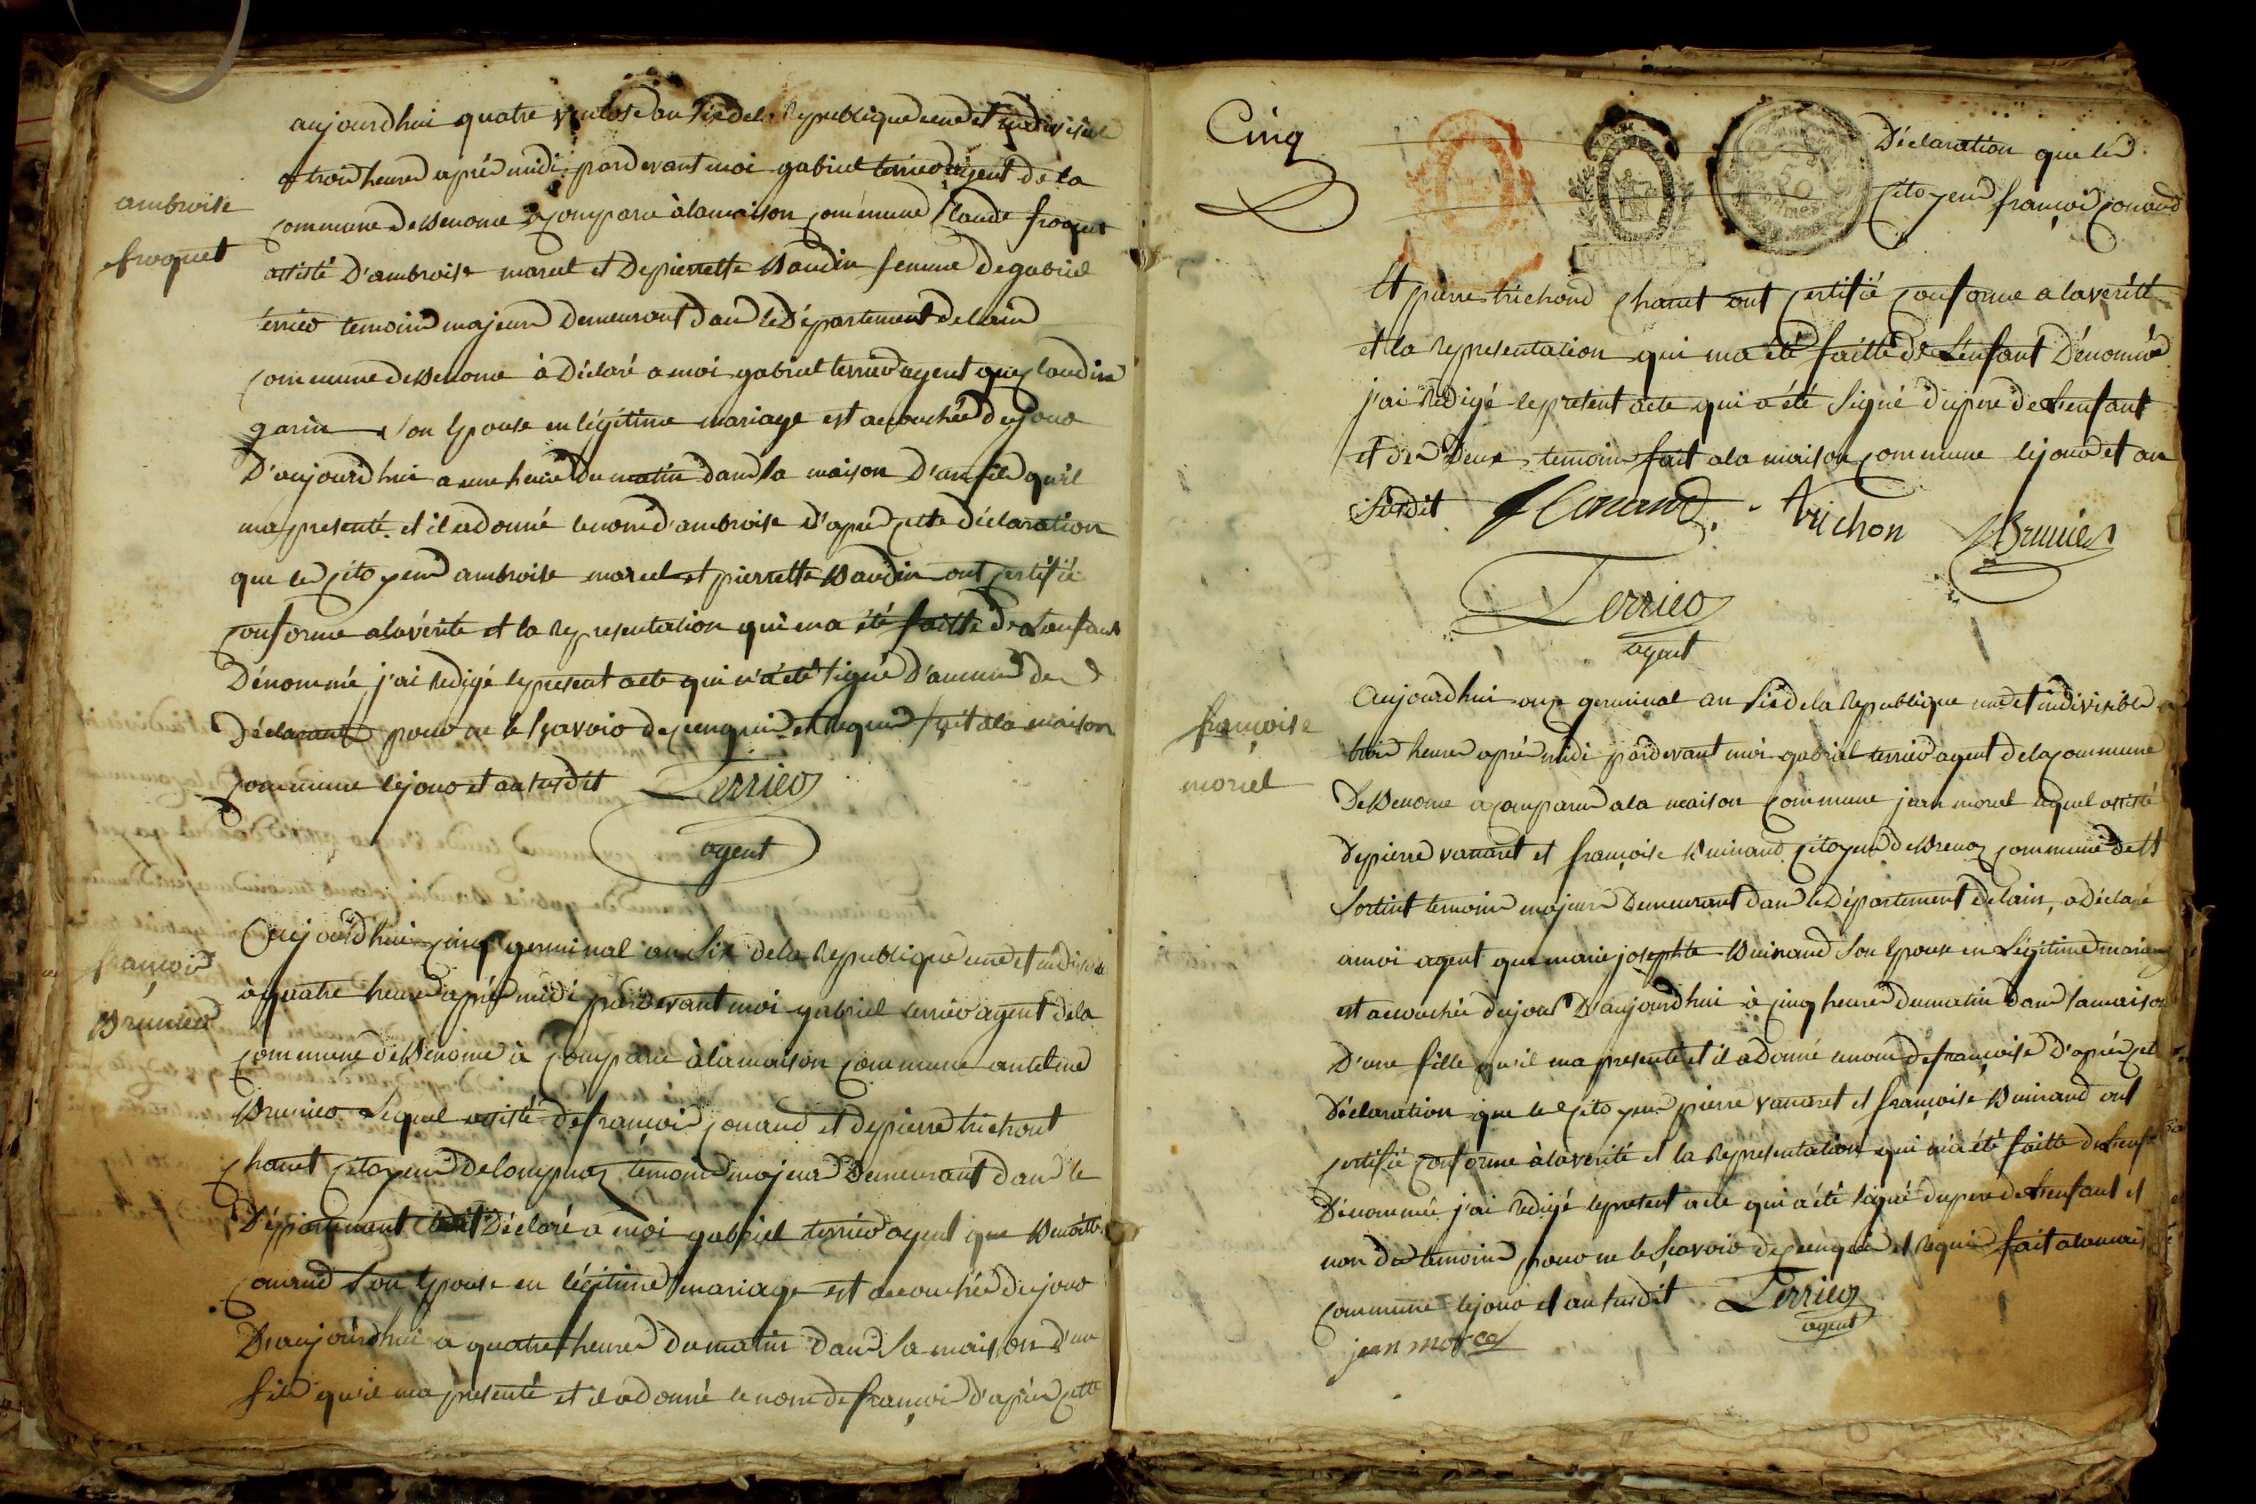 aujourdhui quatre ventose an six de la Republique une et indivisible
a trois heures aprés midi pardevant moi gabriel terrier agent de la
commune de Benonce a comparu à la maison commune Claude froquet
assisté D'ambroise morel et De pierrette Baudin femme de gabriel
terrier temoins majeurs Demeurant dans le Département de lain
commune de Benonce à Déclaré a moi gabriel terrier agent que claudine
garin son Epouse en légitime mariage est acouchée du jour
D'aujourdhui a une heure du matin dans sa maison D'un fils qu'il
ma presenté et il a donné le nom d'ambroise d'aprés cette déclaration
que les citoyens ambroise morel et pierrette Baudin ont certifié
conforme a la vérité et la representation qui ma été faitte de L'enfant
Dénommé j'ai redigé le present acte qui n'a été signé d'aucun des
Déclarants pour ne le sçavoir de ce enquis et requis fait a la maison
commune le jour et an susdit Terrier
agent
ambroise
froquet
aujourd'hui cinq germinal an six de la Republique une et indivisible
à quatre heures aprés midi pardevant moi gabriel terrier agent de la
commune de Benonce à comparu à la maison commune antelme
Brunier Lequel assisté de françois conand et de pierre trichont
chanet citoyens de temoins majeurs Demeurant dans le
Département Déclaré a moi gabriel terrier agent que Benoitte
conand son Epouse en légitime mariage est acouchée du jour
D'aujourdhui a quatre heures du matin dans sa maison d'un
fils qu'il ma presenté et il a donné le nom de françois d'aprés cette
françois
Brunier
Cinq
Déclaration que les
Citoyens françois conand
Et pierre trichond chanet ont certifié conforme a la verité
et la representation qui ma été faitte de L'enfant Dénommé
j'ai redigé le present acte qui a été signé du pere de L'enfant
et des Deux temoins fait a la maison commune le jour et an
Susdit f Conand Trichon Brunier
Terrier
agent
françoise
morel
aujourdhui onze germinal an six de la Republique une et indivisible a
trois heures aprés midi pardevant moi gabriel terrier agent de la commune
De Benonce a comparu a la maison commune jean morel lequel assisté
de pierre vanaret et françoise Buinand citoyens de commune de
temoins majeurs Demeurant dans le Département de lain, a déclaré
a moi agent que marie josephte Buinand son Epouse en Légitime mariage
est acouchée du jour D'aujourdhui à cinq heures du matin dans sa maison
D'une fille qu'il ma presenté et il a donné le nom de françoise D'aprés cette
déclaration que les citoyens pierre vanaret et françoise Buinand ont
certifié conforme à la verité et la representation qui m'a été faitte de L'enfant
Dénommé j'ai redigé le present acte qui a été signé du pere de L'enfant et
non des temoins pour ne le sçavoir de ce enquis et requis fait a la maison
commune le jour et an susdit Terrier
agent
jean morel